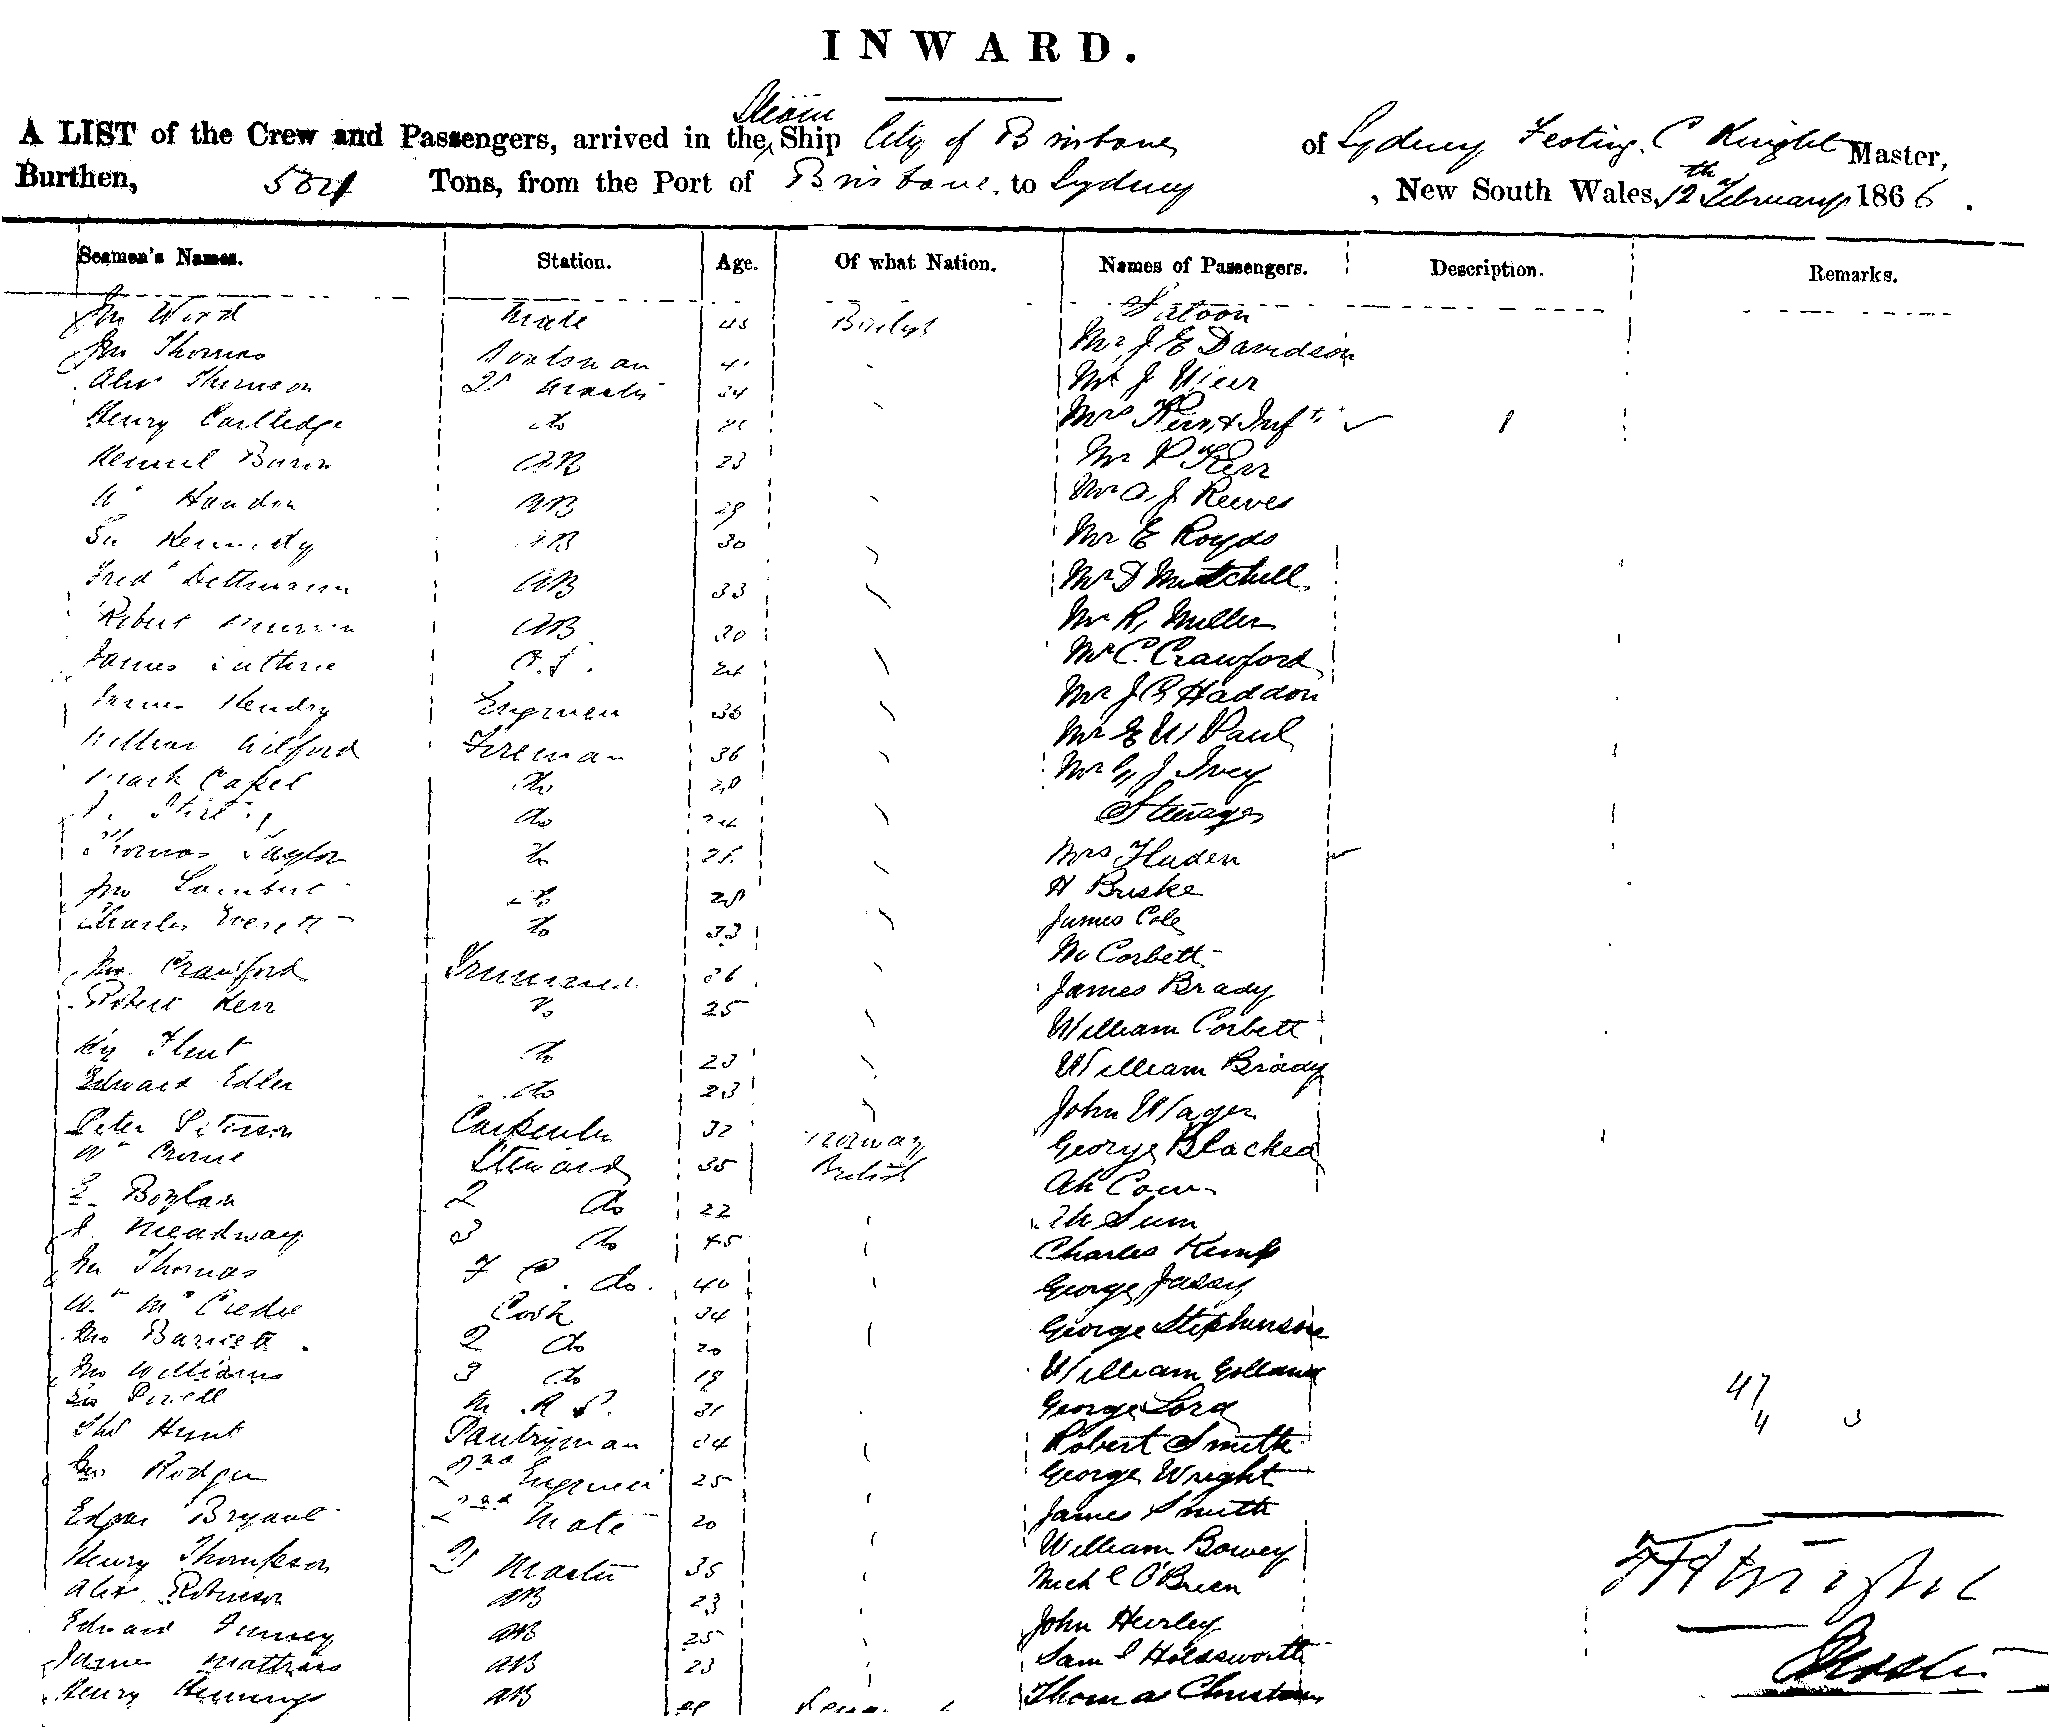 INWARD.
A LIST of the Crew and Passengers, arrived in the Ship City of Brisbane of Sydney Festing. C Knight Master,
Burthen, 504 Tons, from the Port of Brisbane to Sydney , New South Wales, 12th February 1866.
Seamen's Names. Station. Age. Of what Nation. Names of Passengers. Description. Remarks.
Jno Ward Mate 43 British Saloon
Jno Thomas Boatsman Mr J E Davidson
Alexr Thomson Qr Master 34 Mr J Weir
Henry Cartledge do Mrs Kerr & Inft
Baron AB 23 Mr P Kerr
AB 29 Mr A. J Reeves
Kennedy AB 30 Mr E Royds
Fredk Dettmann AB 33 Mr D Mitchell
Robert AB 30 Mr R. Miller
James Guthrie O.S. 24 Mr C. Crawford
James Hendry Engineer 36 Mr J B Haddon
William Wilford Fireman 36 Mr E W Paul
Mark Capel do 28 Mr G J Ivey
do 24 Steerage
Thomas Taylor do 25 Mrs Haden
Jno Lambert do 28 H Buske
Charles Everett do 33 James Cole
Jno Crawford Trimmer 26 M Corbett
Robert Kerr do 25 James Brady
Hy Flint do 23 William Corbett
Edward Edler do 23 William Brady
Peter Peterson Carpenter 32 Norway John Wager
Wm Crowe Steward 35 British George Blacked
E Boylan 2 do 22 Ah Cow
J. Meadway 3 do 45 Ah Sum
Jno Thomas F C. do. 40 Charles Kemp
Wm McCredie Cook 34 George Jassy
Jno Barnett 2 do 20 George Stephenson
Jno Williams 3 do 19 William Golland
31 George Lord
Thos Hunt Pantryman 24 Robert Smith
Jno Rodger 2nd Engineer 25 George Wright
Edgar Bryant 2nd Mate 20 James Smith
Henry Thompson Qr Master 35 William Bowey
Alexr Robinson AB 23 Michl O'Brien
Edward AB 25 John Hurley
James Mattress AB 23 Saml Holdsworth
Henry Hennings AB Thomas
47
4 3
Knight
Master